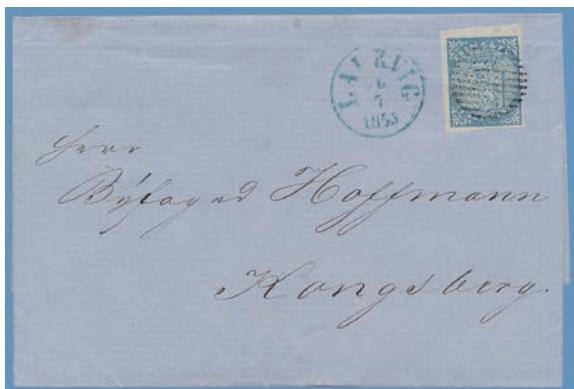 LAURVIG
7
1855
Herr
Byfoged Hoffmann
Kongsberg.